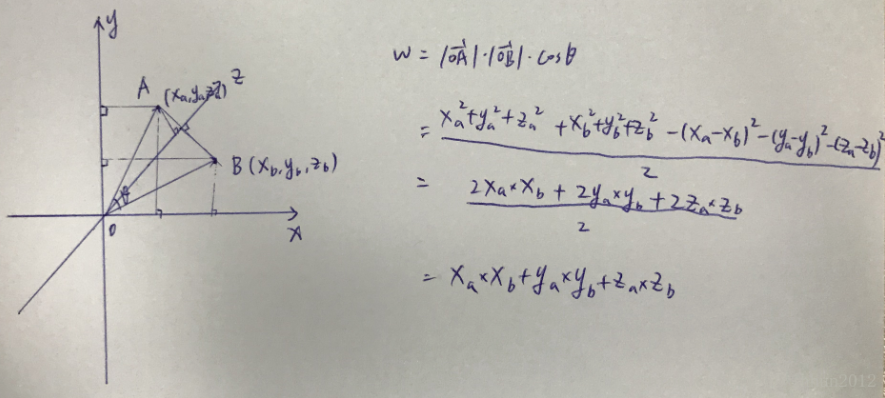 y
A (xa, ya, za) z
B (xb, yb, zb)
θ
0
x
W = |OA|·|OB|·cosθ
= xa²+ya²+za² +xb²+yb²+zb² -(xa-xb)²-(ya-yb)²-(za-zb)²
2
= 2xa×xb + 2ya×yb + 2za×zb
2
= xa×xb+ya×yb+za×zb